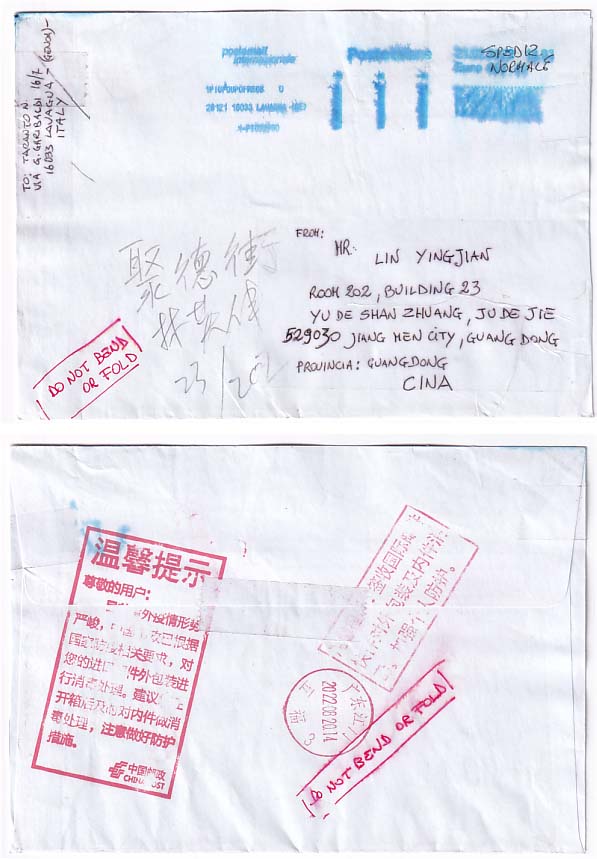 TO: TARANTO N.
VIA G. GARIBALDI 16/7
16033 LAVAGNA - (GENOA) -
ITALY
postamail
internazionale
Posteitaliane
Euro
SPEDIZ
NORMALE
16033 LAVAGNA (GE)
FROM:
MR. LIN YINGJIAN
ROOM 202, BUILDING 23
YU DE SHAN ZHUANG, JU DE JIE
529030 JIANG MEN CITY, GUANG DONG
PROVINCIA: GUANGDONG
CINA
聚德街
林英
23/202
DO NOT BEND
OR FOLD
温馨提示
尊敬的用户:
外疫情形势
严峻,中国邮政已根据
国家防疫相关要求,对
您的进口邮件外包装进
行消毒处理。建议
开箱后及时对内件做消
毒处理,注意做好防护
措施。
中国邮政
CHINA POST
签收国际
外包装及内件消
加强个人防护。
广东江门
2022.08.20.14
DO NOT BEND OR FOLD